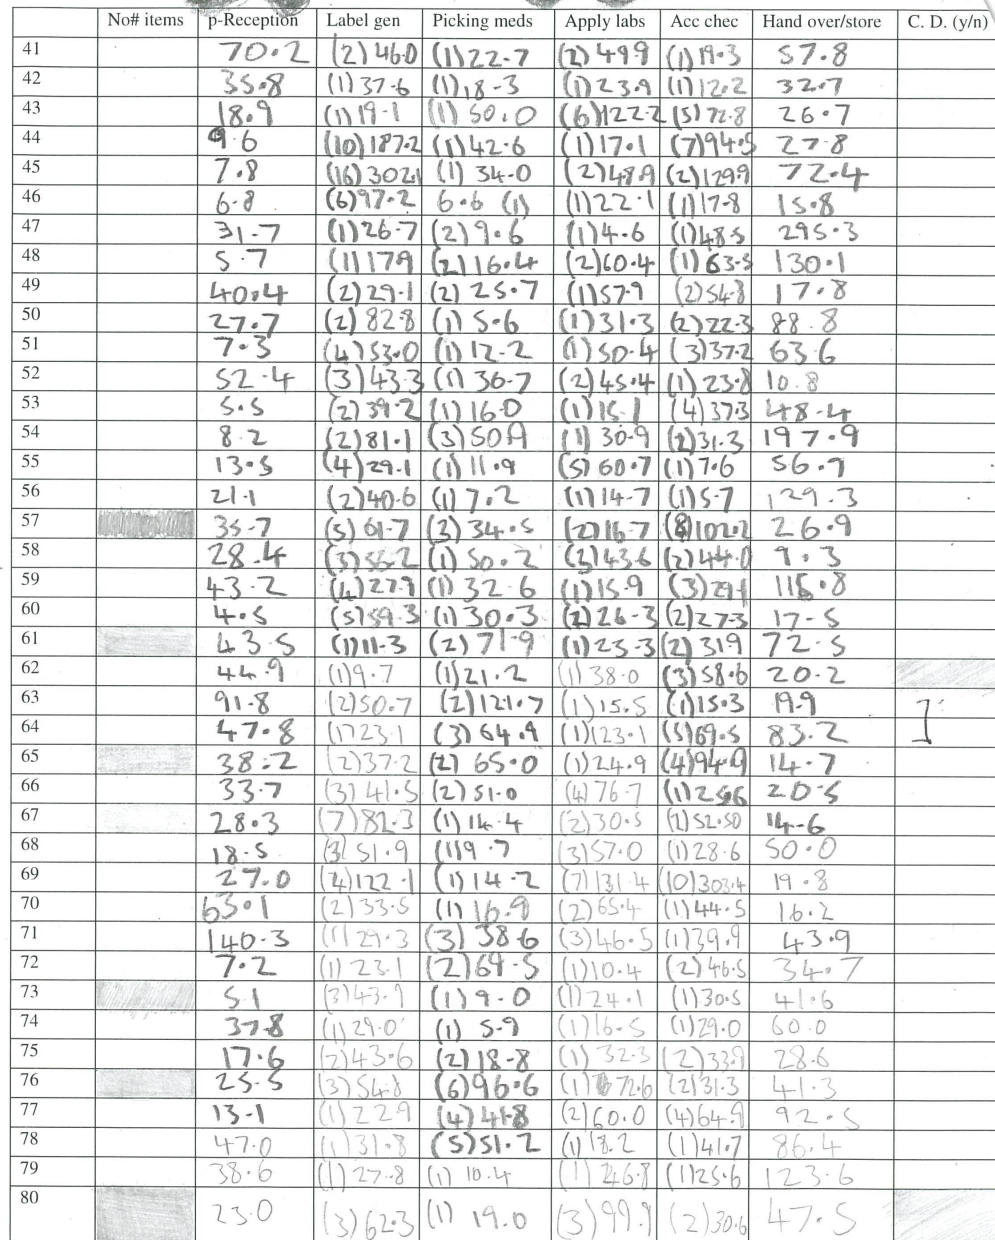 No# items p-Reception Label gen Picking meds Apply labs Acc chec Hand over/store C. D. (y/n)
41 70.2 (2) 46.0 (1) 22.7 (2) 49.9 (1) 19.3 57.8
42 35.8 (1) 37.6 (1) 18.3 (1) 23.9 (1) 12.2 32.7
43 18.9 (1) 19.1 (1) 50.0 (6) 122.2 (5) 72.8 26.7
44 9.6 (10) 187.2 (1) 42.6 (1) 17.1 (7) 94.5 27.8
45 7.8 (16) 302.1 (1) 34.0 (2) 48.9 (2) 129.9 72.4
46 6.8 (6) 97.2 6.6 (1) (1) 22.1 (1) 17.8 15.8
47 31.7 (1) 26.7 (2) 9.6 (1) 4.6 (1) 48.5 295.3
48 5.7 (1) 17.9 (2) 16.4 (2) 60.4 (1) 63.5 130.1
49 40.4 (2) 29.1 (2) 25.7 (1) 57.9 (2) 54.8 17.8
50 27.7 (2) 82.8 (1) 5.6 (1) 31.3 (2) 22.3 88.8
51 7.3 (4) 53.0 (1) 12.2 (1) 50.4 (3) 37.2 63.6
52 52.4 (3) 43.3 (1) 36.7 (2) 45.4 (1) 23.8 10.8
53 5.5 (2) 39.2 (1) 16.0 (1) 15.1 (4) 37.3 48.4
54 8.2 (2) 81.1 (3) 50.9 (1) 30.9 31.3 197.9
55 13.5 (4) 29.1 (1) 11.9 (5) 60.7 (1) 7.6 56.9
56 21.1 (2) 40.6 (1) 7.2 (1) 14.7 (1) 5.7 129.3
57 35.7 (5) 61.7 (3) 34.5 (2) 16.7 (8) 102.2 26.9
58 28.4 (3) 56.2 (1) 50.2 43.6 (2) 44.0 9.3
59 43.2 (4) 27.9 (1) 32.6 (1) 15.9 (3) 29.1 115.8
60 4.5 (5) 59.3 (1) 30.3 (2) 26.3 (2) 27.3 17.5
61 43.5 (1) 11.3 (2) 71.9 (1) 23.3 (2) 31.9 72.5
62 44.9 (1) 9.7 (1) 21.2 (1) 38.0 (3) 58.6 20.2
63 91.8 (2) 50.7 (2) 121.7 (1) 15.5 (1) 15.3 19.9
64 47.8 (1) 23.1 (3) 64.9 (1) 123.1 (5) 69.5 83.2
65 38.2 (2) 37.2 (2) 65.0 (1) 24.9 (4) 94.9 14.7
66 33.7 (3) 41.5 (2) 51.0 (4) 76.7 (1) 25.6 20.5
67 28.3 (7) 82.3 (1) 14.4 (2) 30.5 (2) 52.50 14.6
68 18.5 (3) 51.9 (1) 9.7 (3) 57.0 (1) 28.6 50.0
69 27.0 122.1 (1) 14.2 (7) 131.4 (10) 303.4 19.8
70 63.1 (2) 33.5 (1) 16.9 (2) 65.4 (1) 44.5 16.2
71 140.3 (1) 29.3 (3) 38.6 (3) 46.5 (1) 39.9 43.9
72 7.2 (1) 23.1 (2) 69.5 (1) 10.4 (2) 46.5 34.7
73 5.1 (3) 43.9 (1) 9.0 (1) 24.1 (1) 30.5 41.6
74 37.8 (1) 29.0 (1) 5.9 (1) 16.5 (1) 29.0 60.0
75 17.6 (2) 43.6 (2) 18.8 (1) 32.3 (2) 33.9 28.6
76 25.5 (3) 54.8 (6) 96.6 (1) 72.6 (2) 31.3 41.3
77 13.1 (1) 22.9 (4) 41.8 (2) 60.0 (4) 64.9 92.5
78 47.0 (1) 31.8 (5) 51.2 (1) 18.2 (1) 41.7 86.4
79 38.6 (1) 27.8 (1) 10.4 (1) 26.8 (1) 25.6 123.6
80 23.0 (3) 62.3 (1) 19.0 (3) 99.9 (2) 30.6 47.5